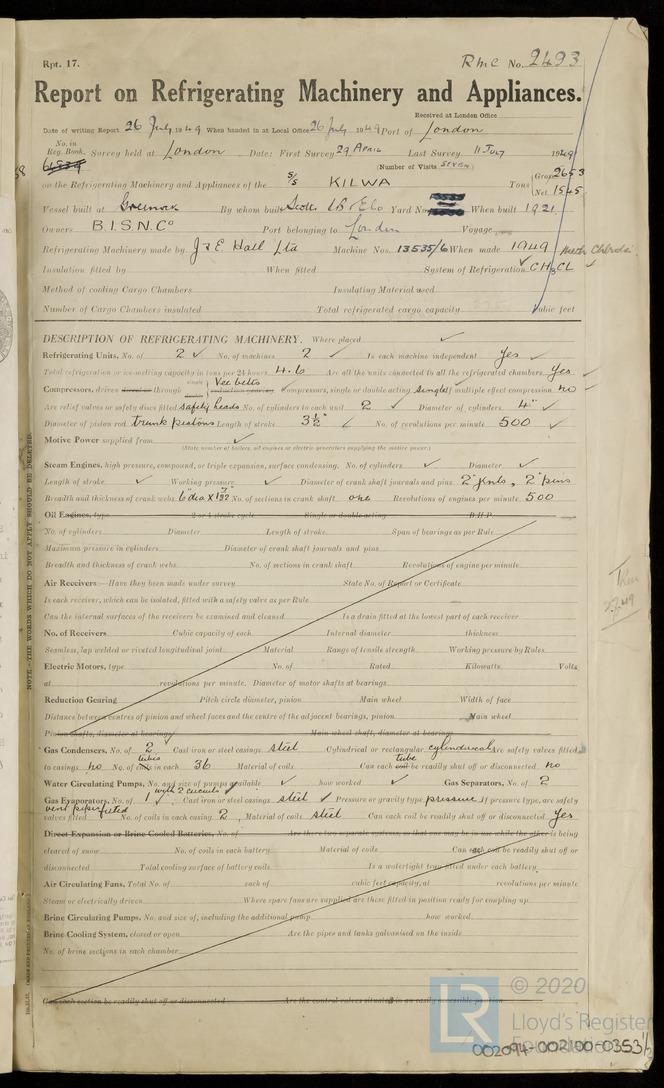 Rpt. 17.
Rmc No. 2493
Report on Refrigerating Machinery and Appliances.
Received at London Office
Date of writing Report 26 July 1949 When handed in at Local Office 26 July 1949 Port of London
No. in Reg. Book. Survey held at London Date: First Survey 29 April Last Survey 11 July 1949
(Number of Visits Seven)
on the Refrigerating Machinery and Appliances of the S/S KILWA Tons Gross 2653 Net 1545
Vessel built at Greenock By whom built Scotts Yard No. When built 1921
Owners B.I.S.N. Co Port belonging to London Voyage
Refrigerating Machinery made by J & E Hall Ltd Machine Nos. 13535/6 When made 1949
Insulation fitted by When fitted System of Refrigeration CH3CL
Method of cooling Cargo Chambers Insulating Material used
Number of Cargo Chambers insulated Total refrigerated cargo capacity cubic feet
DESCRIPTION OF REFRIGERATING MACHINERY. Where placed
Refrigerating Units, No. of 2 No. of machines 2 Is each machine independent Yes
Total refrigeration or ice-melting capacity in tons per 24 hours 4.6 Are all the units connected to all the refrigerated chambers Yes
Compressors, driven direct or through single double reduction gearing Vee belts Compressors, single or double acting single If multiple effect compression no
Are relief valves or safety discs fitted safety heads No. of cylinders to each unit 2 Diameter of cylinders 4"
Diameter of piston rod trunk pistons Length of stroke 3½" No. of revolutions per minute 500
Motive Power supplied from
(State number of boilers, oil engines or electric generators supplying the motive power.)
Steam Engines, high pressure, compound, or triple expansion, surface condensing. No. of cylinders Diameter
Length of stroke Working pressure Diameter of crank shaft journals and pins 2" jnls, 2" pins
Breadth and thickness of crank webs No. of sections in crank shaft one Revolutions of engines per minute 500
Oil Engines, type 2 or 4 stroke cycle Single or double acting B.H.P.
No. of cylinders Diameter Length of stroke Span of bearings as per Rule
Maximum pressure in cylinders Diameter of crank shaft journals and pins
Breadth and thickness of crank webs No. of sections in crank shaft Revolutions of engine per minute
Air Receivers:—Have they been made under survey State No. of Report or Certificate
Is each receiver, which can be isolated, fitted with a safety valve as per Rule
Can the internal surfaces of the receivers be examined and cleaned Is a drain fitted at the lowest part of each receiver
No. of Receivers Cubic capacity of each Internal diameter thickness
Seamless, lap welded or riveted longitudinal joint Material Range of tensile strength Working pressure by Rules
Electric Motors, type No. of Rated Kilowatts Volts
at revolutions per minute. Diameter of motor shafts at bearings
Reduction Gearing Pitch circle diameter, pinion Main wheel Width of face
Distance between centres of pinion and wheel faces and the centre of the adjacent bearings, pinion Main wheel
Pinion shafts, diameter at bearings Main wheel shaft, diameter at bearings
Gas Condensers, No. of 2 Cast iron or steel casings steel Cylindrical or rectangular cylindrical Are safety valves fitted
to casings no No. of coils tubes in each 36 Material of coils Can each coil tube be readily shut off or disconnected no
Water Circulating Pumps, No. and size of pumps available how worked Gas Separators, No. of 2
Gas Evaporators, No. of 1 with 2 circuits Cast iron or steel casings steel Pressure or gravity type pressure If pressure type, are safety
valves fitted No. of coils in each casing 2 Material of coils steel Can each coil be readily shut off or disconnected Yes
Direct Expansion or Brine Cooled Batteries, No. of Are there two separate systems, so that one may be in use while the other is being
cleared of snow No. of coils in each battery Material of coils Can each coil be readily shut off or
disconnected Total cooling surface of battery coils Is a watertight tray fitted under each battery
Air Circulating Fans, Total No. of each of cubic feet capacity, at revolutions per minute
Steam or electrically driven Where spare fans are supplied are these fitted in position ready for coupling up
Brine Circulating Pumps, No. and size of, including the additional pump how worked
Brine Cooling System, closed or open Are the pipes and tanks galvanised on the inside
No. of brine sections in each chamber
Can each section be readily shut off or disconnected Are the control valves situated in an easily accessible position
NOTE.—THE WORDS WHICH DO NOT APPLY SHOULD BE DELETED.
© 2020
LR Lloyd's Register
002094-002100-0353 1/3